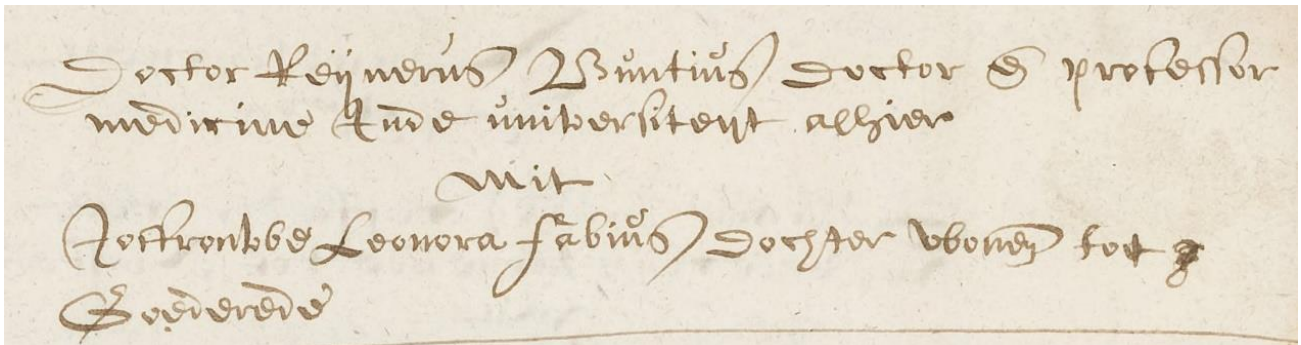 Doctor Reijnerus Buntius doctor en professor
medicine Inde universiteijt alhier
mit
Joffrouwe Leonora Fabius dochter wonen tot
Goederede